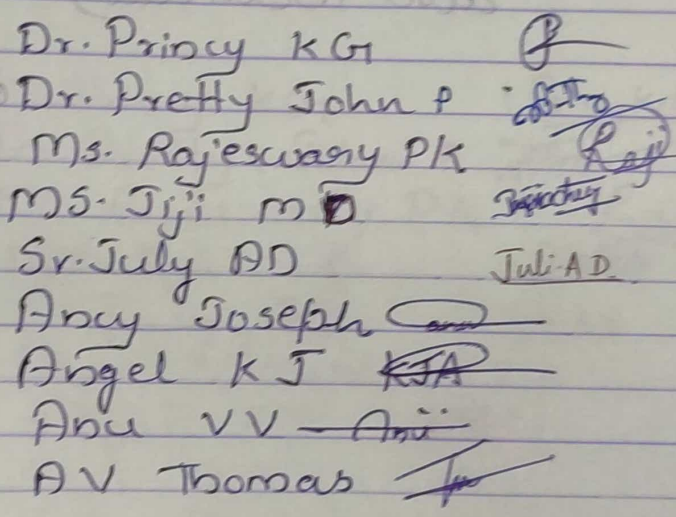 Dr. Princy KG
Dr. Pretty John P
Ms. Rajeswary PK Raji
Ms. Jiji MD
Sr. July AD Juli A D
Ancy Joseph
Angel K J KJA
Anu VV Anu
AV Thomas